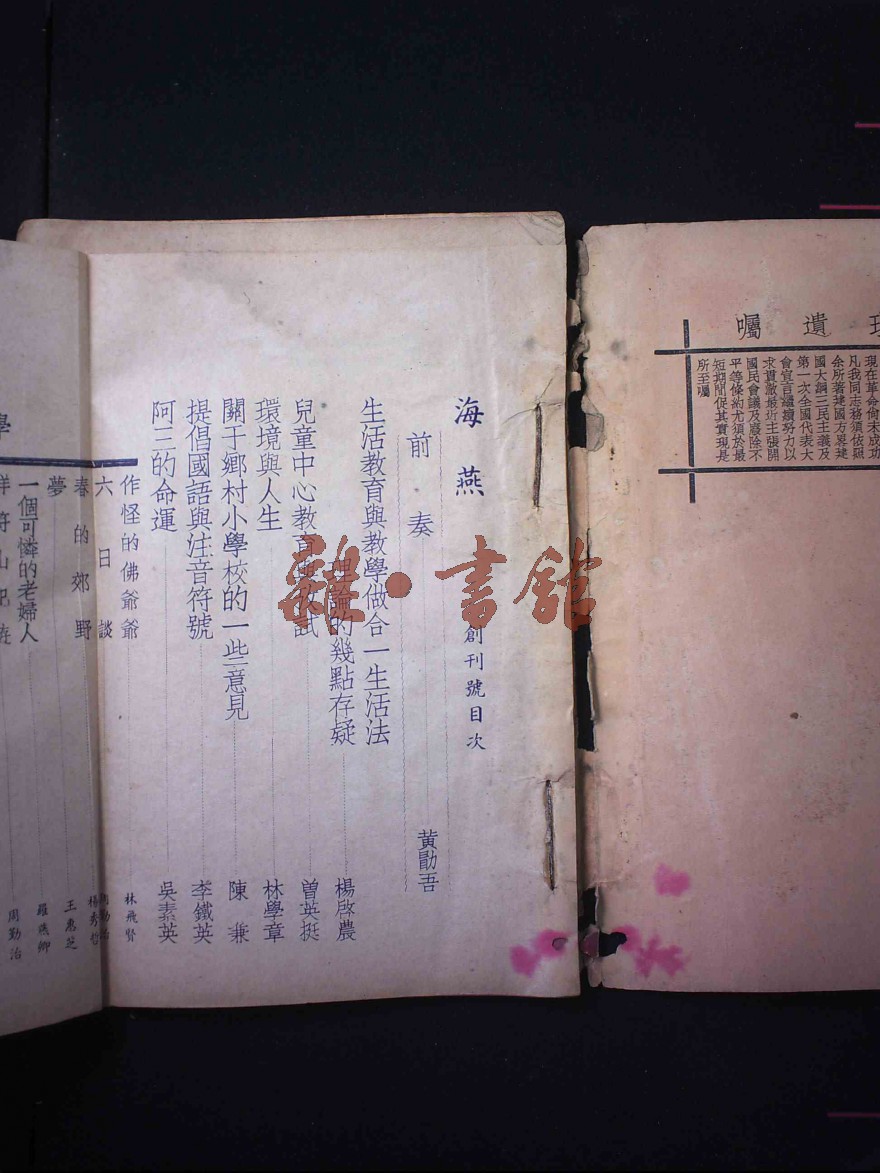 遺囑
現在革命尚未成功
凡我同志務須依照
余所著建國方畧建
國大綱三民主義及
第一次全國代表大
會宣言繼續努力以
求貫澈最近主張開
國民會議及廢除不
平等條約尤須於最
短期間促其實現是
所至囑
海燕 創刊號目次
前奏 黃勖吾
生活教育與教學做合一生活法
理論的幾點存疑 楊啓農
兒童中心教育 試 曾英挺
環境與人生 林學章
關于鄉村小學校的一些意見 陳兼
提倡國語與注音符號 李鐵英
阿三的命運 吳素英
作怪的佛爺爺 林飛賢
六日談 周勤治
春的郊野 楊秀哲
夢 王惠芝
一個可憐的老婦人 羅燕卿
山 周勤治
雜·書館